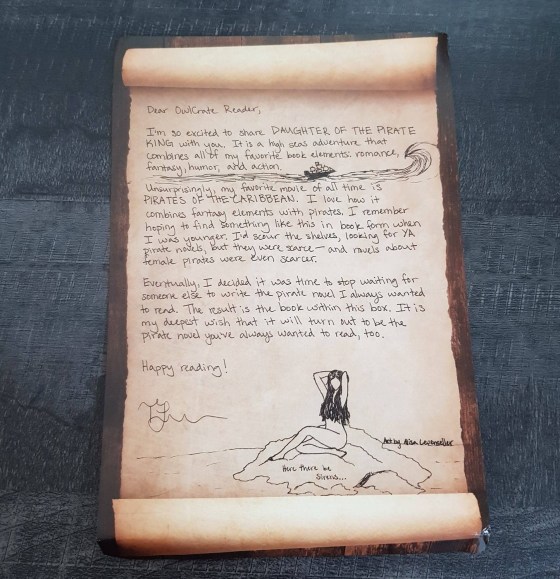 Dear OwlCrate Reader,
I'm so excited to share DAUGHTER OF THE PIRATE
KING with you. It is a high seas adventure that
combines all of my favorite book elements: romance,
fantasy, humor, and action.
Unsurprisingly, my favorite movie of all time is
PIRATES OF THE CARIBBEAN. I love how it
combines fantasy elements with pirates. I remember
hoping to find something like this in book form when
I was younger. I'd scour the shelves, looking for YA
pirate novels, but they were scarce — and novels about
female pirates were even scarcer.
Eventually, I decided it was time to stop waiting for
someone else to write the pirate novel I always wanted
to read. The result is the book within this box. It is
my deepest wish that it will turn out to be the
pirate novel you've always wanted to read, too.
Happy reading!
Art by Alisa Levenseller
Here there be
Sirens...